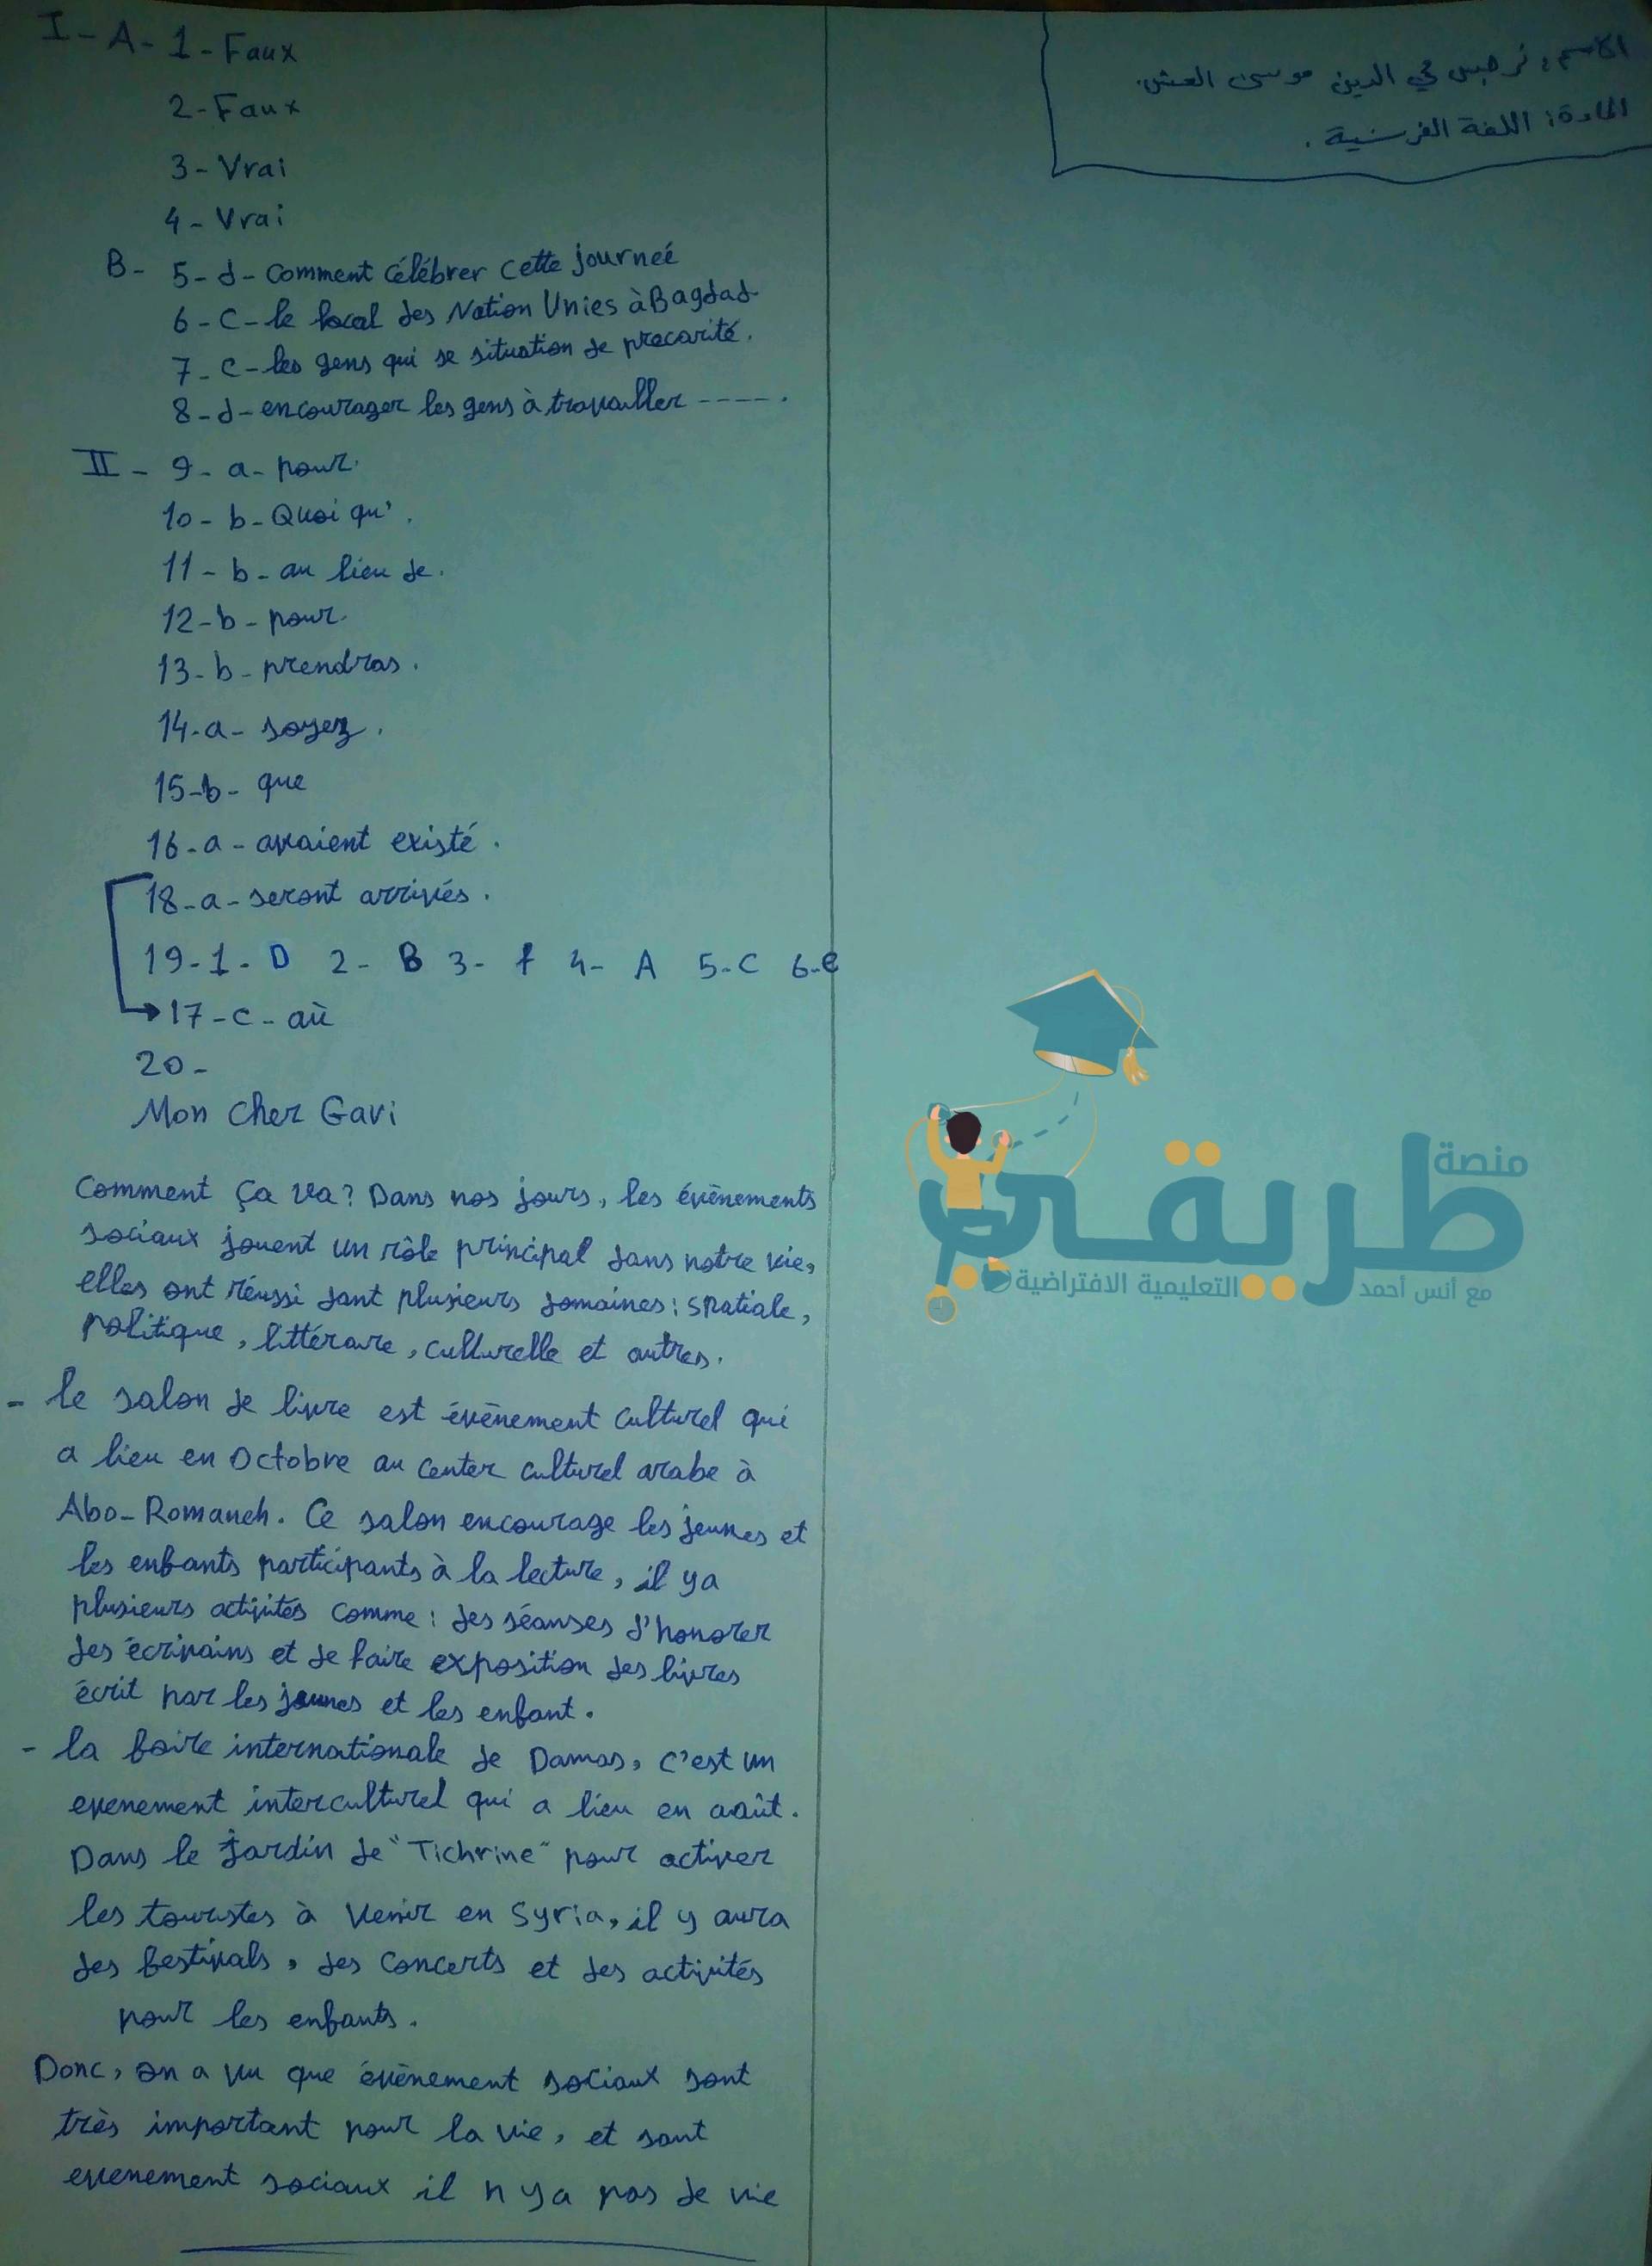 I - A - 1 - Faux
2 - Faux
3 - Vrai
4 - Vrai
B - 5 - d - Comment célébrer cette journeé
6 - C - le local des Nation Unies à Bagdad
7 - C - les gens qui se situation de precarité.
8 - d - encourager les gens à travailler ----.
II - 9 - a - pour.
10 - b - Quoi qu'.
11 - b - au lieu de.
12 - b - pour.
13 - b - prendras.
14 - a - soyez.
15 - b - que
16 - a - avaient existé.
18 - a - seront arrivés.
19 - 1 - D 2 - B 3 - f 4 - A 5 - C 6 - e
17 - c - où
20 -
Mon cher Gavi
Comment ça va? Dans nos jours, les évènements
sociaux jouent un rôle principal dans notre vie,
elles ont réussi dant plusieurs domaines: spatiale,
politique, littéraire, culturelle et autres.
- le salon de livre est évènement culturel qui
a lieu en Octobre au center culturel arabe à
Abo-Romaneh. Ce salon encourage les jeunes et
les enfants participants à la lecture, il y a
plusieurs activités comme: des séanses d'honorer
des écrivains et de faire exposition des livres
écrit par les jeunes et les enfant.
- la foire internationale de Damas, c'est un
evenement interculturel qui a lieu en août.
Dans le jardin de "Tichrine" pour activer
les touristes à venir en Syria, il y aura
des festivals, des concerts et des activités
pour les enfants.
Donc, on a vu que évènement sociaux sont
très important pour la vie, et sant
evenement sociaux il n y a pas de vie
الاسم: نرجس محي الدين موسى العش.
المادة: اللغة الفرنسية.
منصة
طريقي
التعليمية الافتراضية
مع أنس أحمد